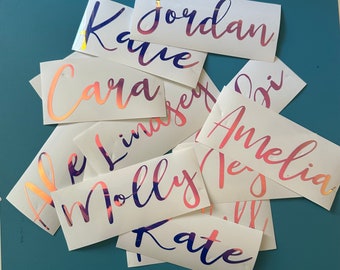 Jordan
Katie
Cara
Lindsey
Amelia
Molly
Kate